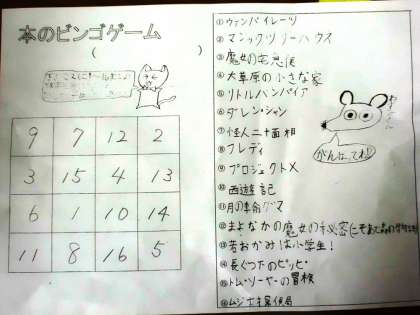 本のビンゴゲーム
(　　　　　　)
9 7 12 2
3 15 4 13
6 1 10 14
11 8 16 5
①ヴァンパイレーツ
②マジックツリーハウス
③魔女の宅急便
④大草原の小さな家
⑤リトルバンパイア
⑥ダレン・シャン
⑦怪人二十面相
⑧フレディ
⑨プロジェクトX
⑩西遊記
⑪月の輪グマ
⑫まよなかの魔女の秘密
⑬若おかみは小学生!
⑭長くつ下のピッピ
⑮トム・ソーヤーの冒検
⑯ムジナ探偵局
がんばってね!!